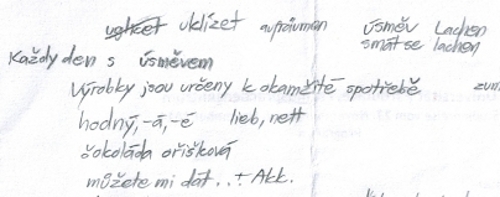 uklízet aufräumen úsměv Lachen
smát se lachen
Každý den s úsměvem
Výrobky jsou určeny k okamžité spotřebě zum
hodný,-á,-é lieb, nett
čokoláda oříšková
můžete mi dát..+ Akk.